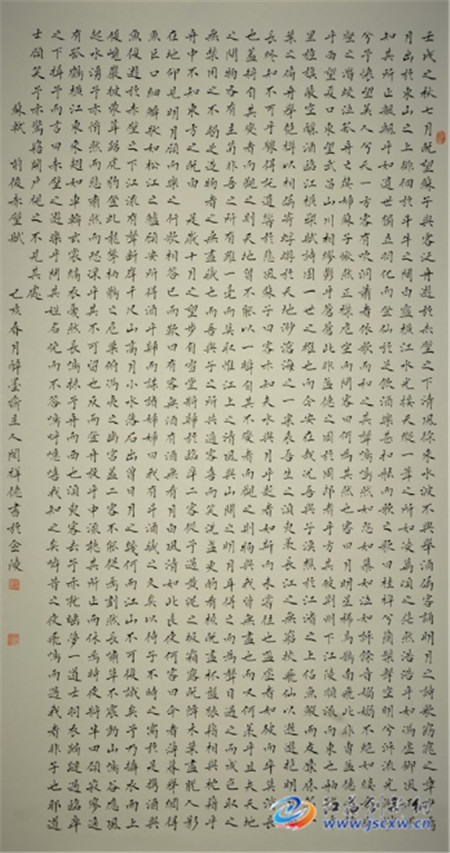 壬戌之秋七月既望蘇子與客泛舟遊於赤壁之下清風徐來水波不興舉酒屬客誦明月之詩歌窈窕之章少焉
月出於東山之上徘徊於斗牛之間白露橫江水光接天縱一葦之所如凌萬頃之茫然浩浩乎如馮虛御風而不
知其所止飄飄乎如遺世獨立羽化而登仙於是飲酒樂甚扣舷而歌之歌曰桂棹兮蘭槳擊空明兮泝流光渺渺
兮予懷望美人兮天一方客有吹洞簫者倚歌而和之其聲嗚嗚然如怨如慕如泣如訴餘音嫋嫋不絕如縷舞幽
壑之潛蛟泣孤舟之嫠婦蘇子愀然正襟危坐而問客曰何為其然也客曰月明星稀烏鵲南飛此非曹孟德之詩
乎西望夏口東望武昌山川相繆鬱乎蒼蒼此非孟德之困於周郎者乎方其破荊州下江陵順流而東也舳艫千
里旌旗蔽空釃酒臨江橫槊賦詩固一世之雄也而今安在哉況吾與子漁樵於江渚之上侶魚蝦而友麋鹿駕一
葉之扁舟舉匏樽以相屬寄蜉蝣於天地渺滄海之一粟哀吾生之須臾羨長江之無窮挾飛仙以遨遊抱明月而
長終知不可乎驟得託遺響於悲風蘇子曰客亦知夫水與月乎逝者如斯而未嘗往也盈虛者如彼而卒莫消長
也蓋將自其變者而觀之則天地曾不能以一瞬自其不變者而觀之則物與我皆無盡也而又何羨乎且夫天地
之間物各有主苟非吾之所有雖一毫而莫取惟江上之清風與山間之明月耳得之而為聲目遇之而成色取之
無禁用之不竭是造物者之無盡藏也而吾與子之所共適客喜而笑洗盞更酌肴核既盡杯盤狼籍相與枕藉乎
舟中不知東方之既白 是歲十月之望步自雪堂將歸於臨皋二客從予過黃泥之坂霜露既降木葉盡脫人影
在地仰見明月顧而樂之行歌相答已而歎曰有客無酒有酒無肴月白風清如此良夜何客曰今者薄暮舉網得
魚巨口細鱗狀如松江之鱸顧安所得酒乎歸而謀諸婦婦曰我有斗酒藏之久矣以待子不時之需於是攜酒與
魚復遊於赤壁之下江流有聲斷岸千尺山高月小水落石出曾日月之幾何而江山不可復識矣予乃攝衣而上
履巉巖披蒙茸踞虎豹登虬龍攀栖鶻之危巢俯馮夷之幽宮蓋二客不能從焉劃然長嘯草木震動山鳴谷應風
起水湧予亦悄然而悲肅然而恐凜乎其不可留也反而登舟放乎中流聽其所止而休焉時夜將半四顧寂寥適
有孤鶴橫江東來翅如車輪玄裳縞衣戛然長鳴掠予舟而西也須臾客去予亦就睡夢一道士羽衣蹁躚過臨皋
之下揖予而言曰赤壁之遊樂乎問其姓名俛而不答嗚呼噫嘻我知之矣疇昔之夜飛鳴而過我者非子也耶道
士顧笑予亦驚悟開戶視之不見其處
蘇軾 前後赤壁賦 己亥春月醉墨齋主人閆祥德書於金陵
www.jscxw.cn